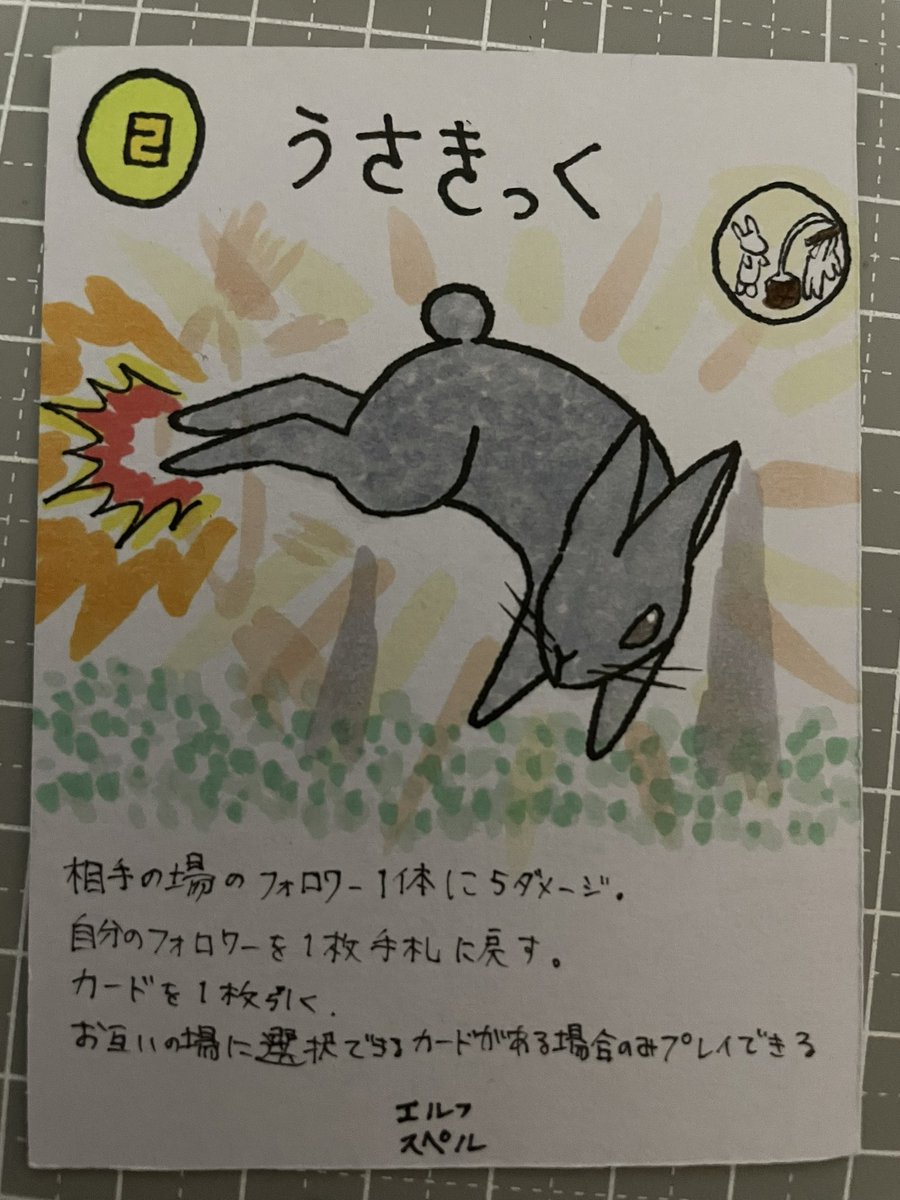 2
うさきっく
相手の場のフォロワー1体に5ダメージ。
自分のフォロワーを1枚手札に戻す。
カードを1枚引く.
お互いの場に選択できるカードがある場合のみプレイできる
エルフ
スペル